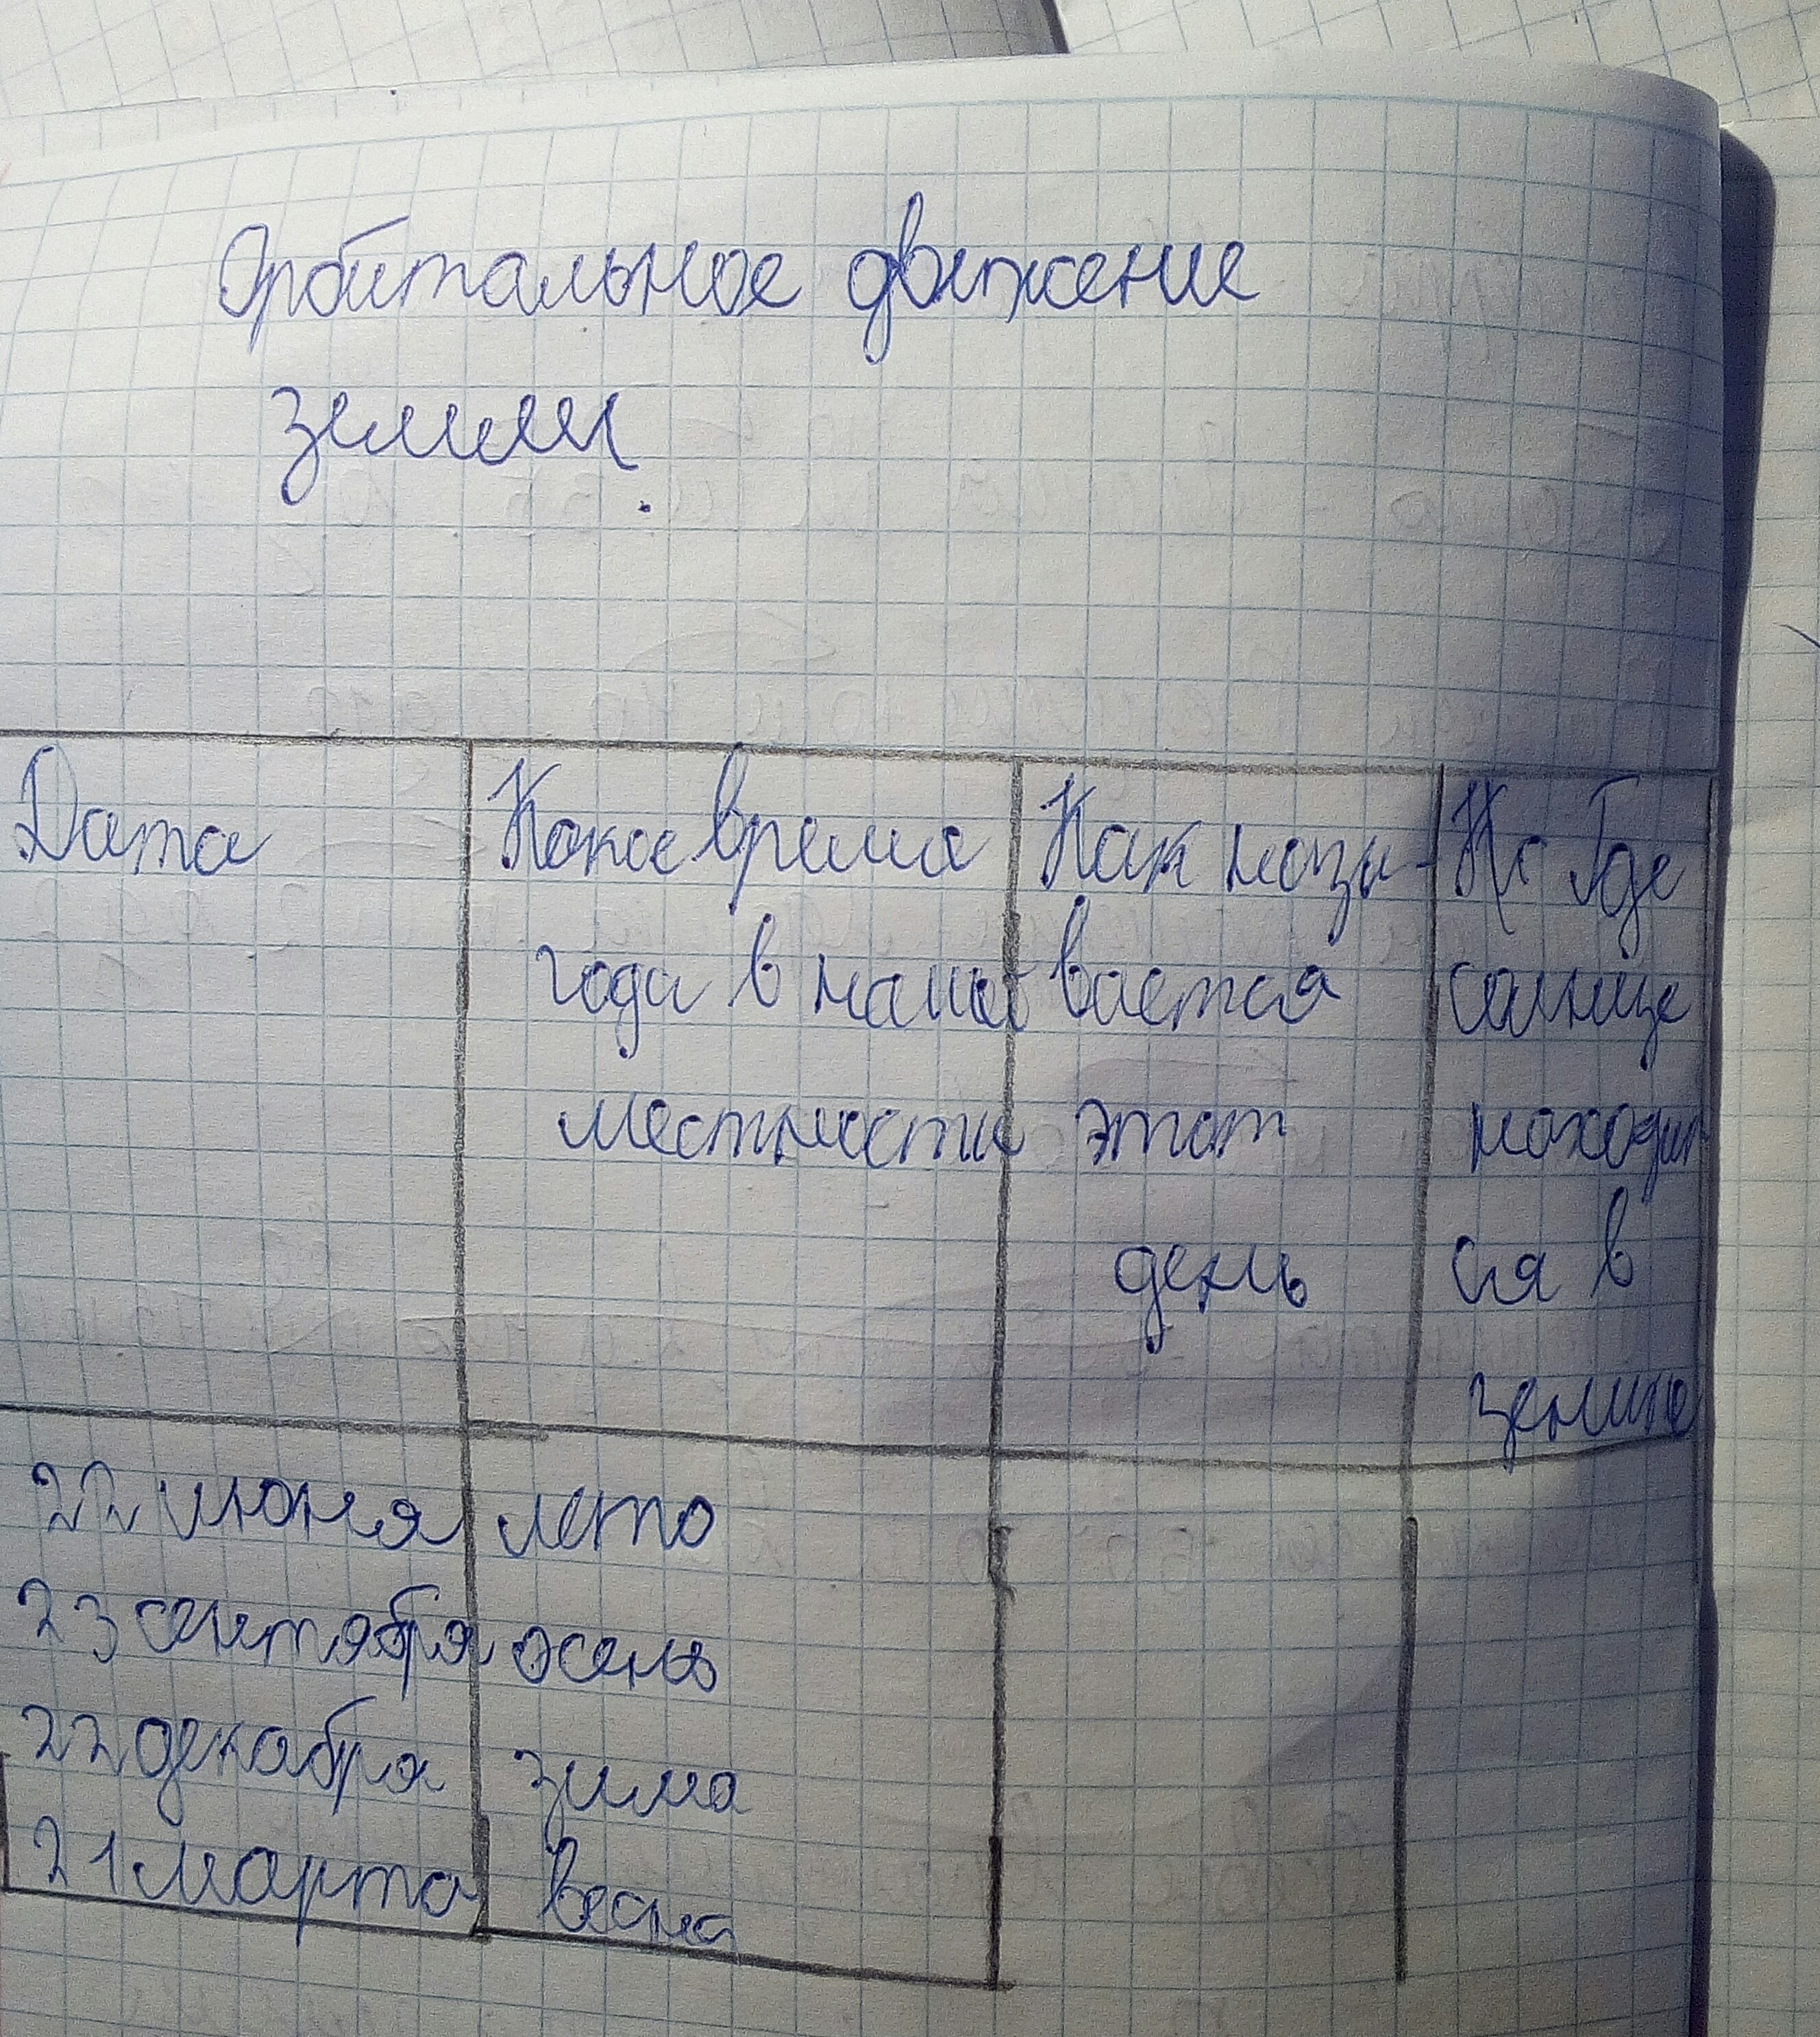 Орбитальное движение
земли.
Дата
Какое время
года в нашей
местности
Как назы-
вается
этот
день
Где
солнце
находит
ся в
зените
22 июня лето
23 сентября осень
22 декабря зима
21 марта весна